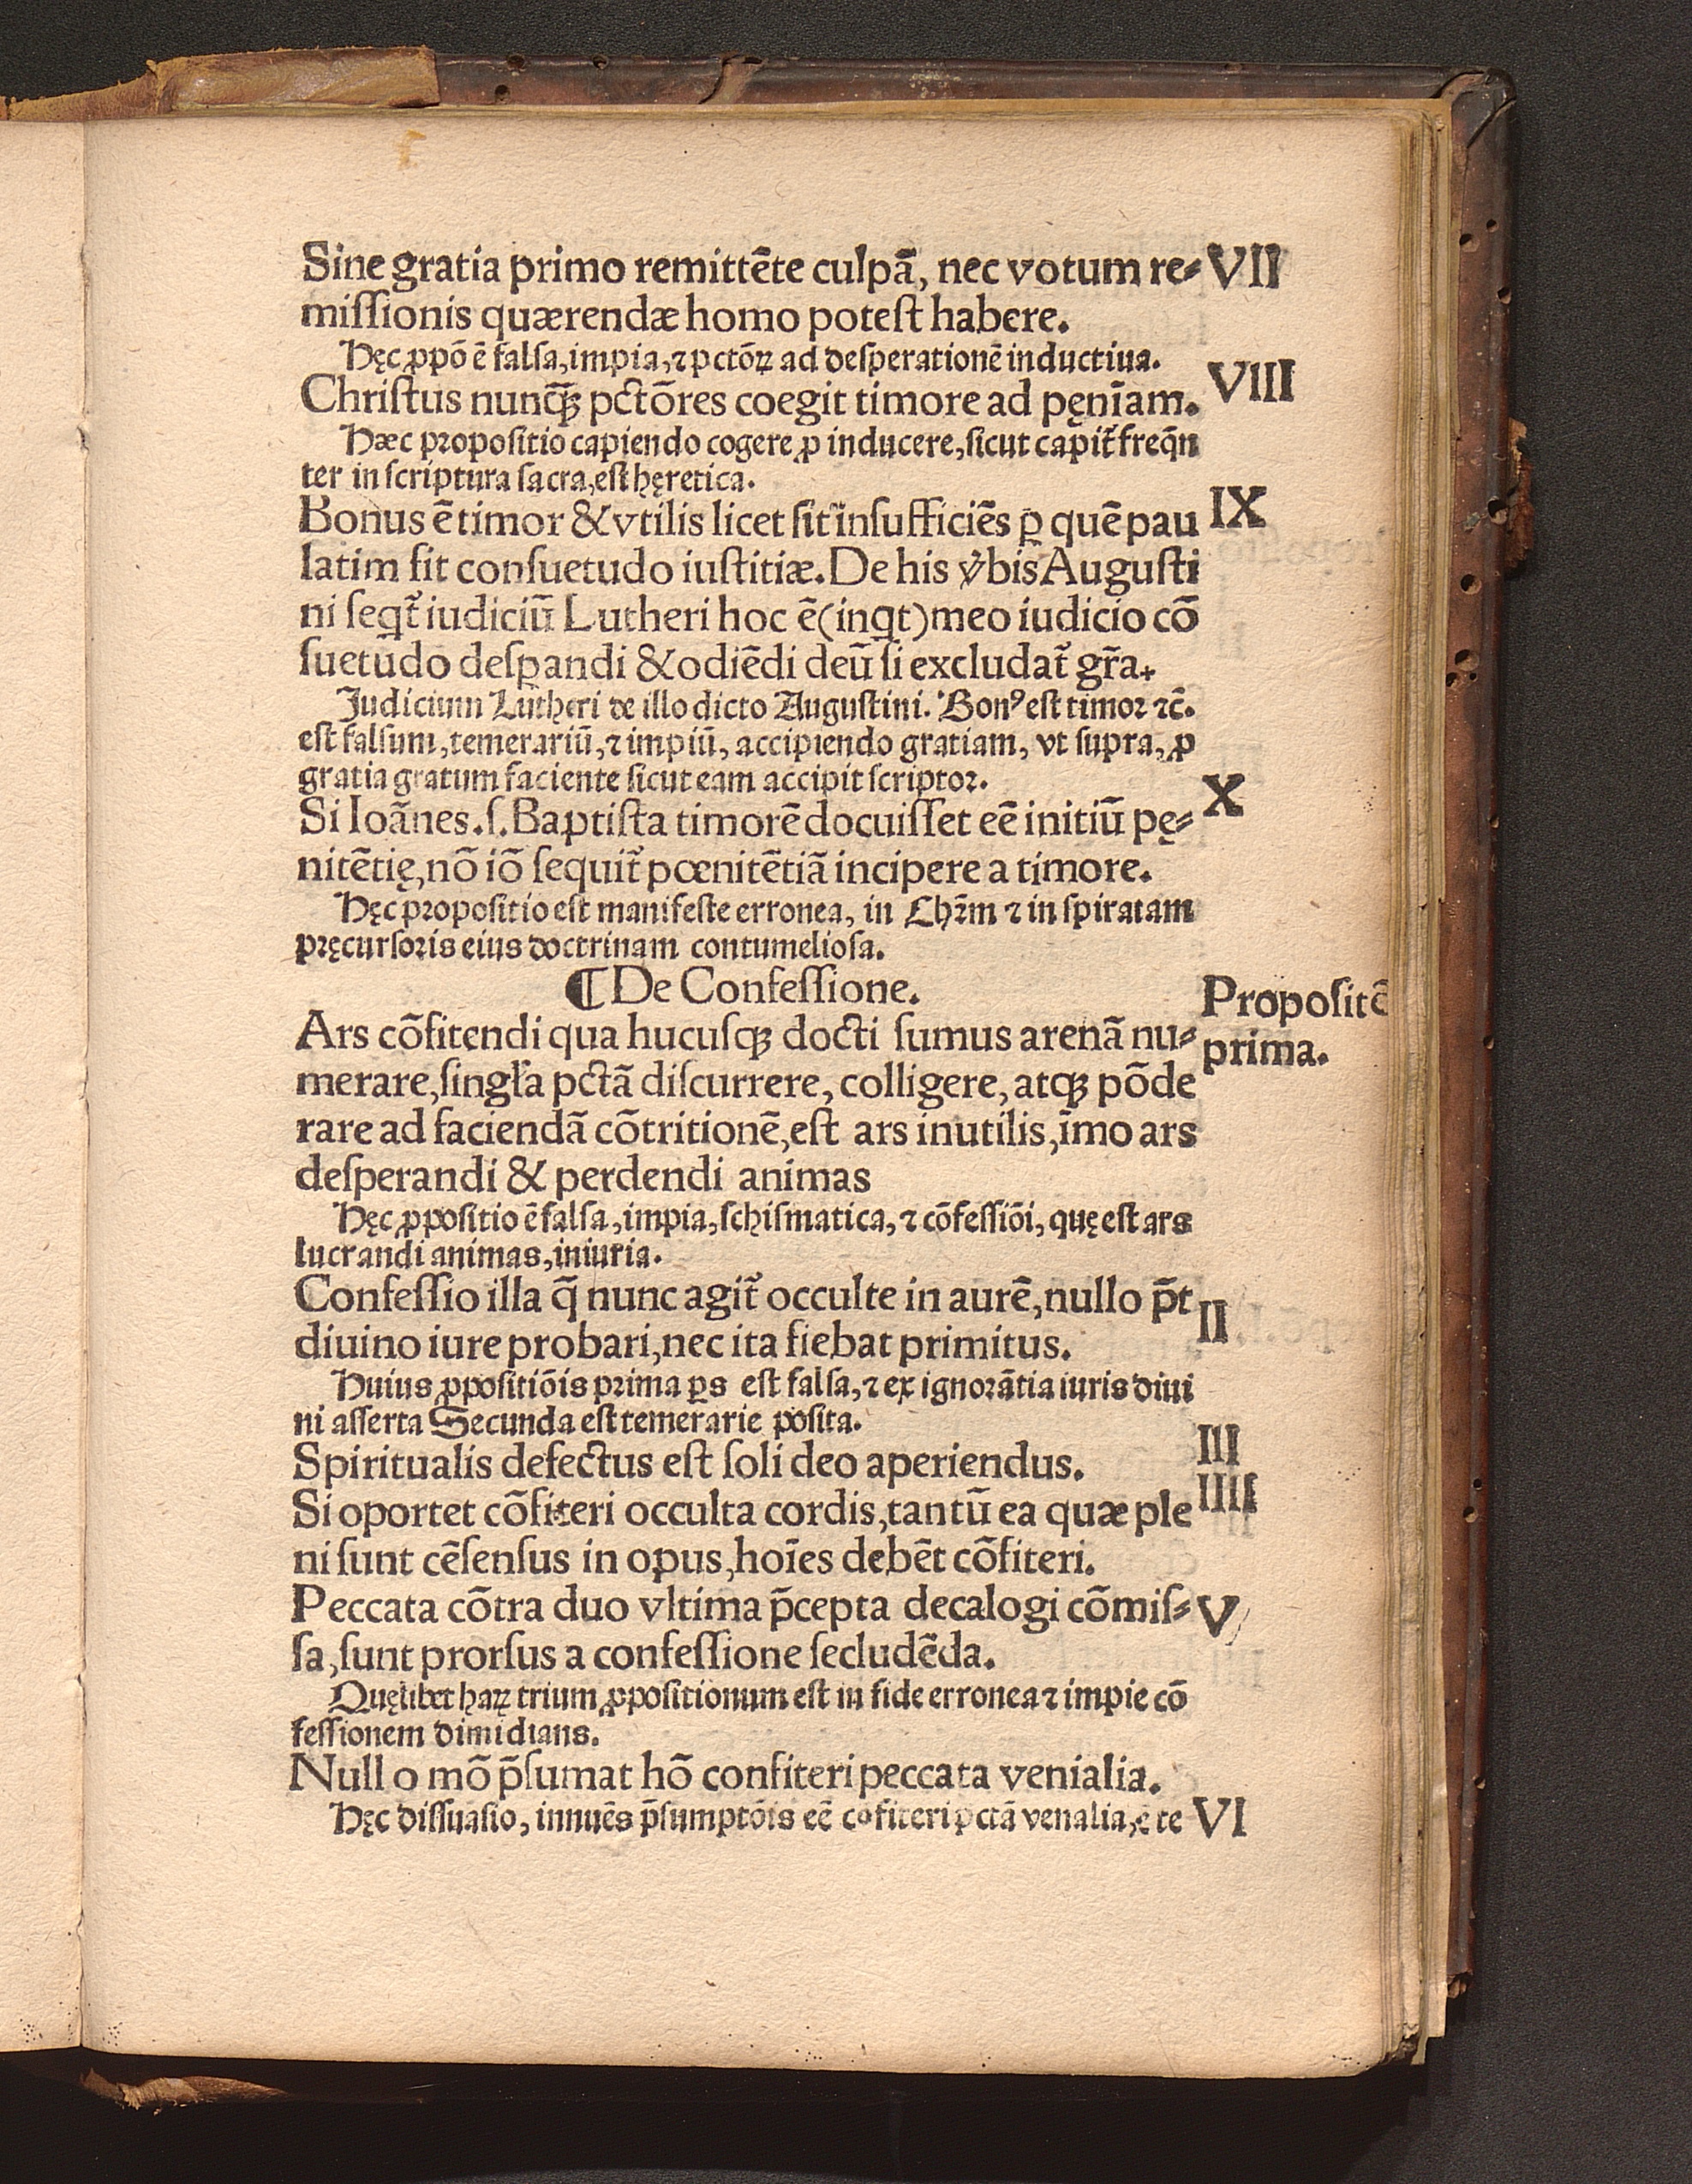 Sine gratia primo remittēte culpā, nec votum re⸗ VII
miſſionis quærendæ homo poteſt habere.
Hęc ꝓpō ē falſa, impia, ⁊ pctōꝝ ad deſperationē inductiua.
Chriſtus nunq̄ꝫ pctōres coegit timore ad pęnīam. VIII
Hæc propoſitio capiendo cogere ꝓ inducere, ſicut capit᷑ freq̄n
ter in ſcriptura ſacra, eſt hęretica.
Bonus ē timor & vtilis licet ſit inſufficiēs ꝑ quē pau IX
latim fit conſuetudo iuſtitiæ. De his v̓bis Auguſti
ni ſeqt᷑ iudiciū Lutheri hoc ē (inqt) meo iudicio cō
ſuetudo deſꝑandi & odiēdi deū ſi excludat᷑ gr̄a.
Judicium Lutheri de illo dicto Auguſtini. Bonꝰ eſt timor ⁊c̄.
eſt falſum, temerariū, ⁊ impiū, accipiendo gratiam, vt ſupra, ꝓ
gratia gratum faciente ſicut eam accipit ſcriptor.
Si Ioānes. ſ. Baptiſta timorē docuiſſet eē initiū pę⸗ X
nitētię, nō iō ſequit᷑ pœnitētiā incipere a timore.
Hęc propoſitio eſt manifeſte erronea, in Chr̄m ⁊ in ſpiratam
pręcurſoris eius doctrinam contumelioſa.
¶ De Confeſſione. Propoſitō
Ars cōfitendi qua hucuſqꝫ docti ſumus arenā nu⸗ prima.
merare, ſingl̓a pctā diſcurrere, colligere, atqꝫ pōde
rare ad faciendā cōtritionē, eſt ars inutilis, īmo ars
deſperandi & perdendi animas
Hęc ꝓpoſitio ē falſa, impia, ſchiſmatica, ⁊ cōfeſſiōi, quę eſt ars
lucrandi animas, iniuria.
Confeſſio illa q̄ nunc agit᷑ occulte in aurē, nullo p̄t II
diuino iure probari, nec ita fiebat primitus.
Huius ꝓpoſitiōis prima ꝑs eſt falſa, ⁊ ex ignorātia iuris diui
ni aſſerta Secunda eſt temerarie poſita.
Spiritualis defectus eſt ſoli deo aperiendus. III
Si oportet cōfiteri occulta cordis, tantū ea quæ ple IIII
ni ſunt cēſenſus in opus, hoīes debēt cōfiteri.
Peccata cōtra duo vltima p̄cepta decalogi cōmiſ⸗ V
ſa, ſunt prorſus a confeſſione ſecludēda.
Quęlibet haꝝ trium ꝓpoſitionum eſt in fide erronea ⁊ impie cō
feſſionem dimidians.
Nullo mō p̄ſumat hō confiteri peccata venialia.
Hęc diſſuaſio, innuēs p̄ſumptōis eē cofiteri pctā venalia, ē te VI